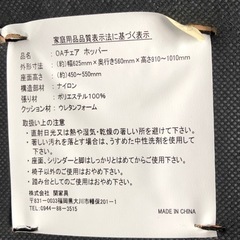 家庭用品品質表示法に基づく表示
品名：OAチェア ホッパー
外形寸法：(約)幅625mm×奥行き560mm×高さ910～1010mm
座面高さ：(約)450～550mm
構造部材：ナイロン
張り材：ポリエステル100%
クッション材：ウレタンフォーム
取扱い上の注意
・直射日光又は熱や湿気・乾燥の著しい所を避けて下さい。
・著しい汚れを落とす場合は、うすめた中性洗剤を使用して下さい。
・座面、シリンダーと脚はしっかりとはめてからご使用下さい。
・椅子以外にはご使用はおやめ下さい。
・踏み台としてのご使用はおやめ下さい。
株式会社 関家具
〒831-0033福岡県大川市幡保201-1
TEL 0944-88-3515
MADE IN CHINA